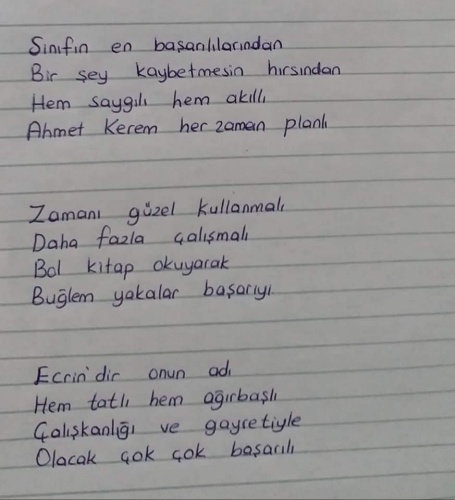 Sınıfın en başarılılarından
Bir şey kaybetmesin hırsından
Hem saygılı hem akıllı
Ahmet Kerem her zaman planlı
Zamanı güzel kullanmalı
Daha fazla çalışmalı
Bol kitap okuyarak
Buğlem yakalar başarıyı
Ecrin'dir onun adı
Hem tatlı hem ağırbaşlı
Çalışkanlığı ve gayretiyle
Olacak çok çok başarılı